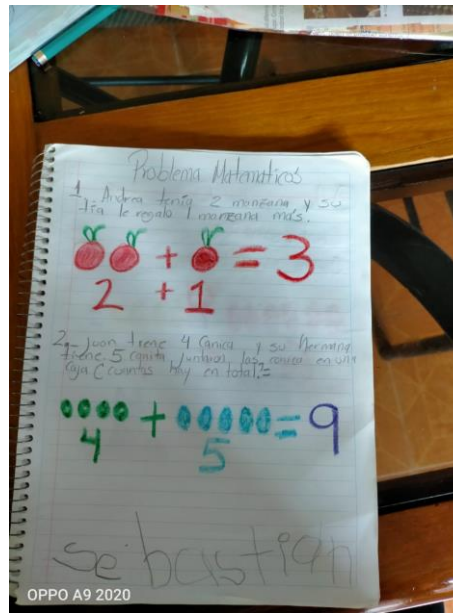 Problema Matematicos
1. Andrea tenia 2 manzana y su
tia le regalo 1 manzana más.
+ = 3
2 + 1
2.- Juan tiene 4 canica y su hermana
tiene 5 canita juntan las canica en una
caja ¿cuantas hay en total?=
+ = 9
4 5
sebastian
OPPO A9 2020